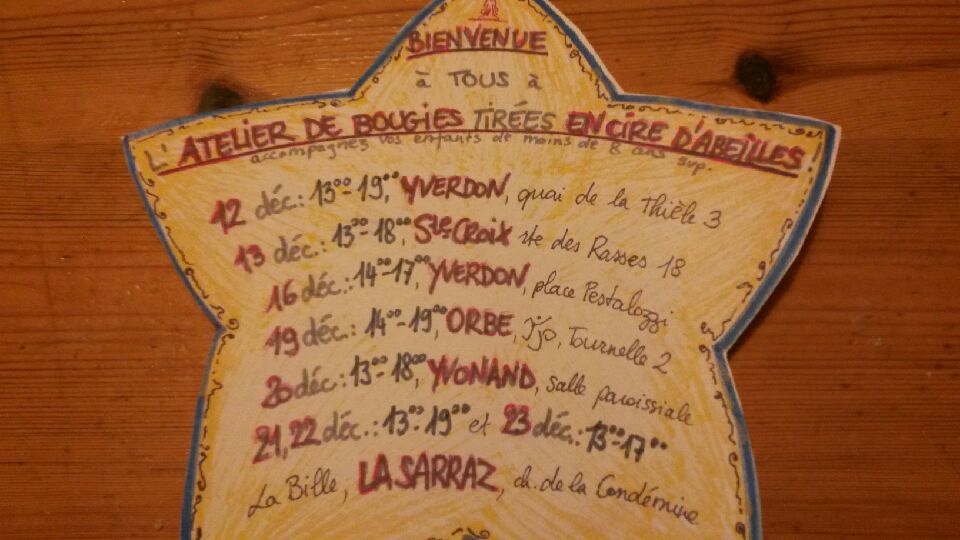 BIENVENUE
à TOUS à
L'ATELIER DE BOUGIES TIRÉES EN CIRE D'ABEILLES!
accompagnez vos enfants de moins de 8 ans svp.
12 déc.: 13°°-19°°, YVERDON, quai de la Thièle 3
13 déc.: 13°°-18°°, Ste Croix rte des Rasses 18
16 déc.: 14°°-17°°, YVERDON, place Pestalozzi
19 déc.: 14°°-19°°, ORBE, Jjo, Tournelle 2
20 déc.: 13°°-18°°, YVONAND, salle paroissiale
21, 22 déc.: 13°°-19°° et 23 déc.: 13°°-17°°
La Bille, LA SARRAZ, ch. de la Condémine